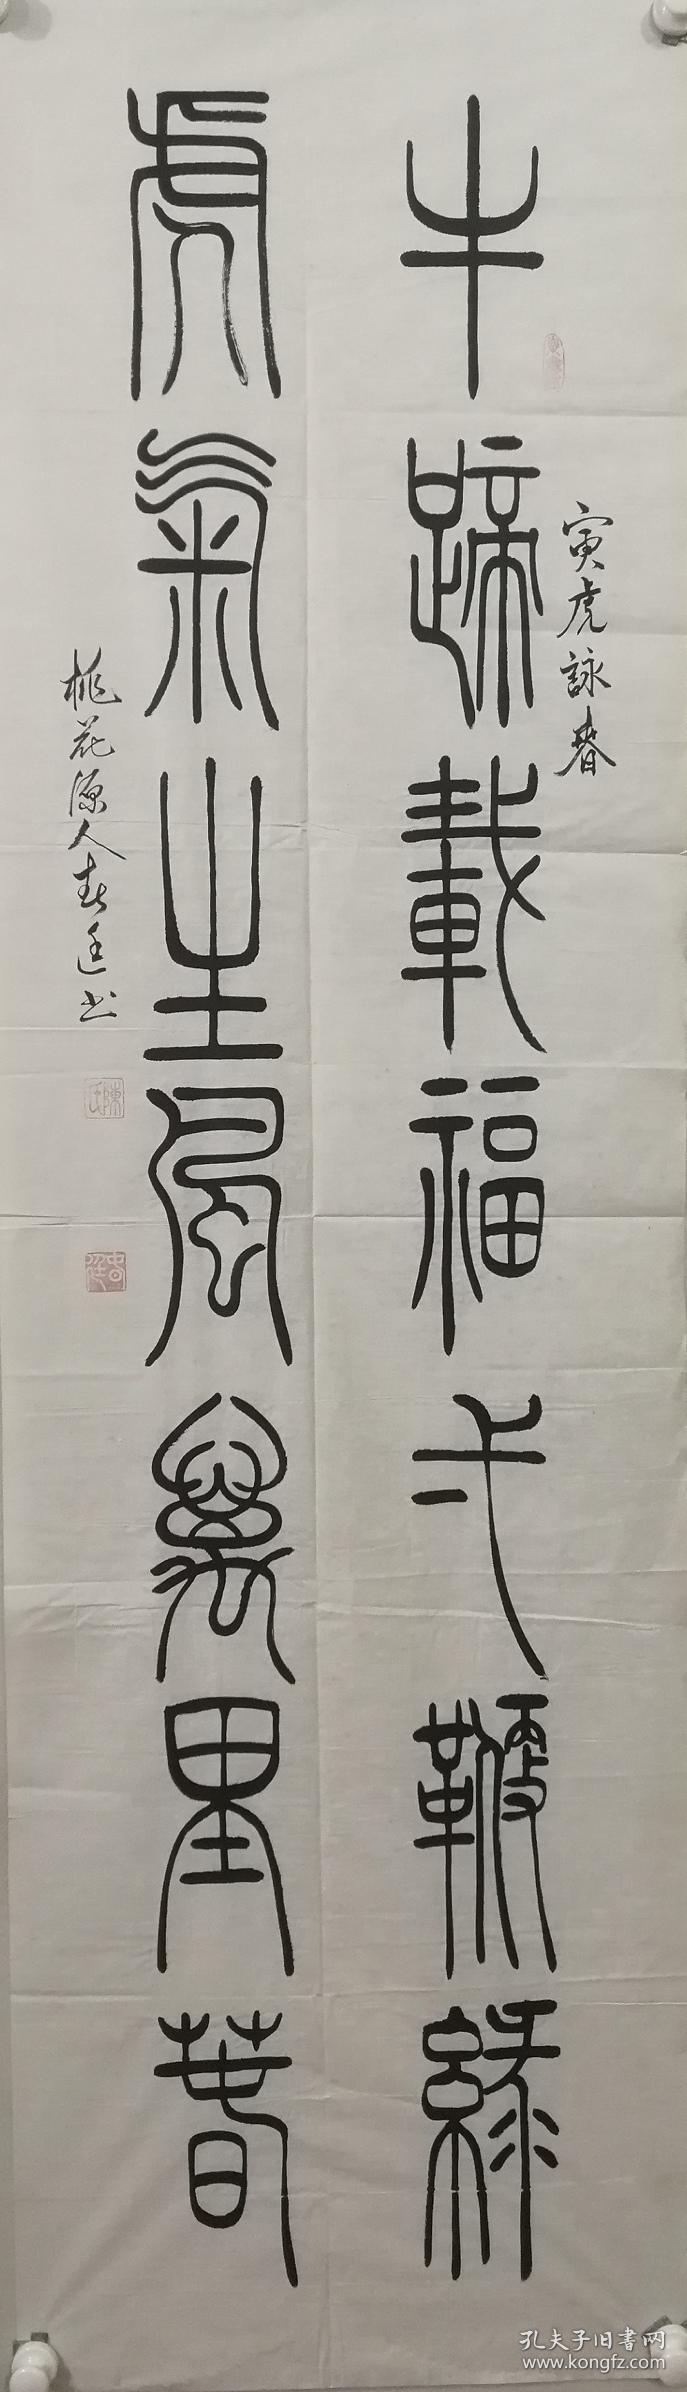 寅虎詠春
牛蹄載福弌鞭綠
虎氣生風萬里春
桃花源人春廷书
陳氏
孔夫子旧書网
www.kongfz.com